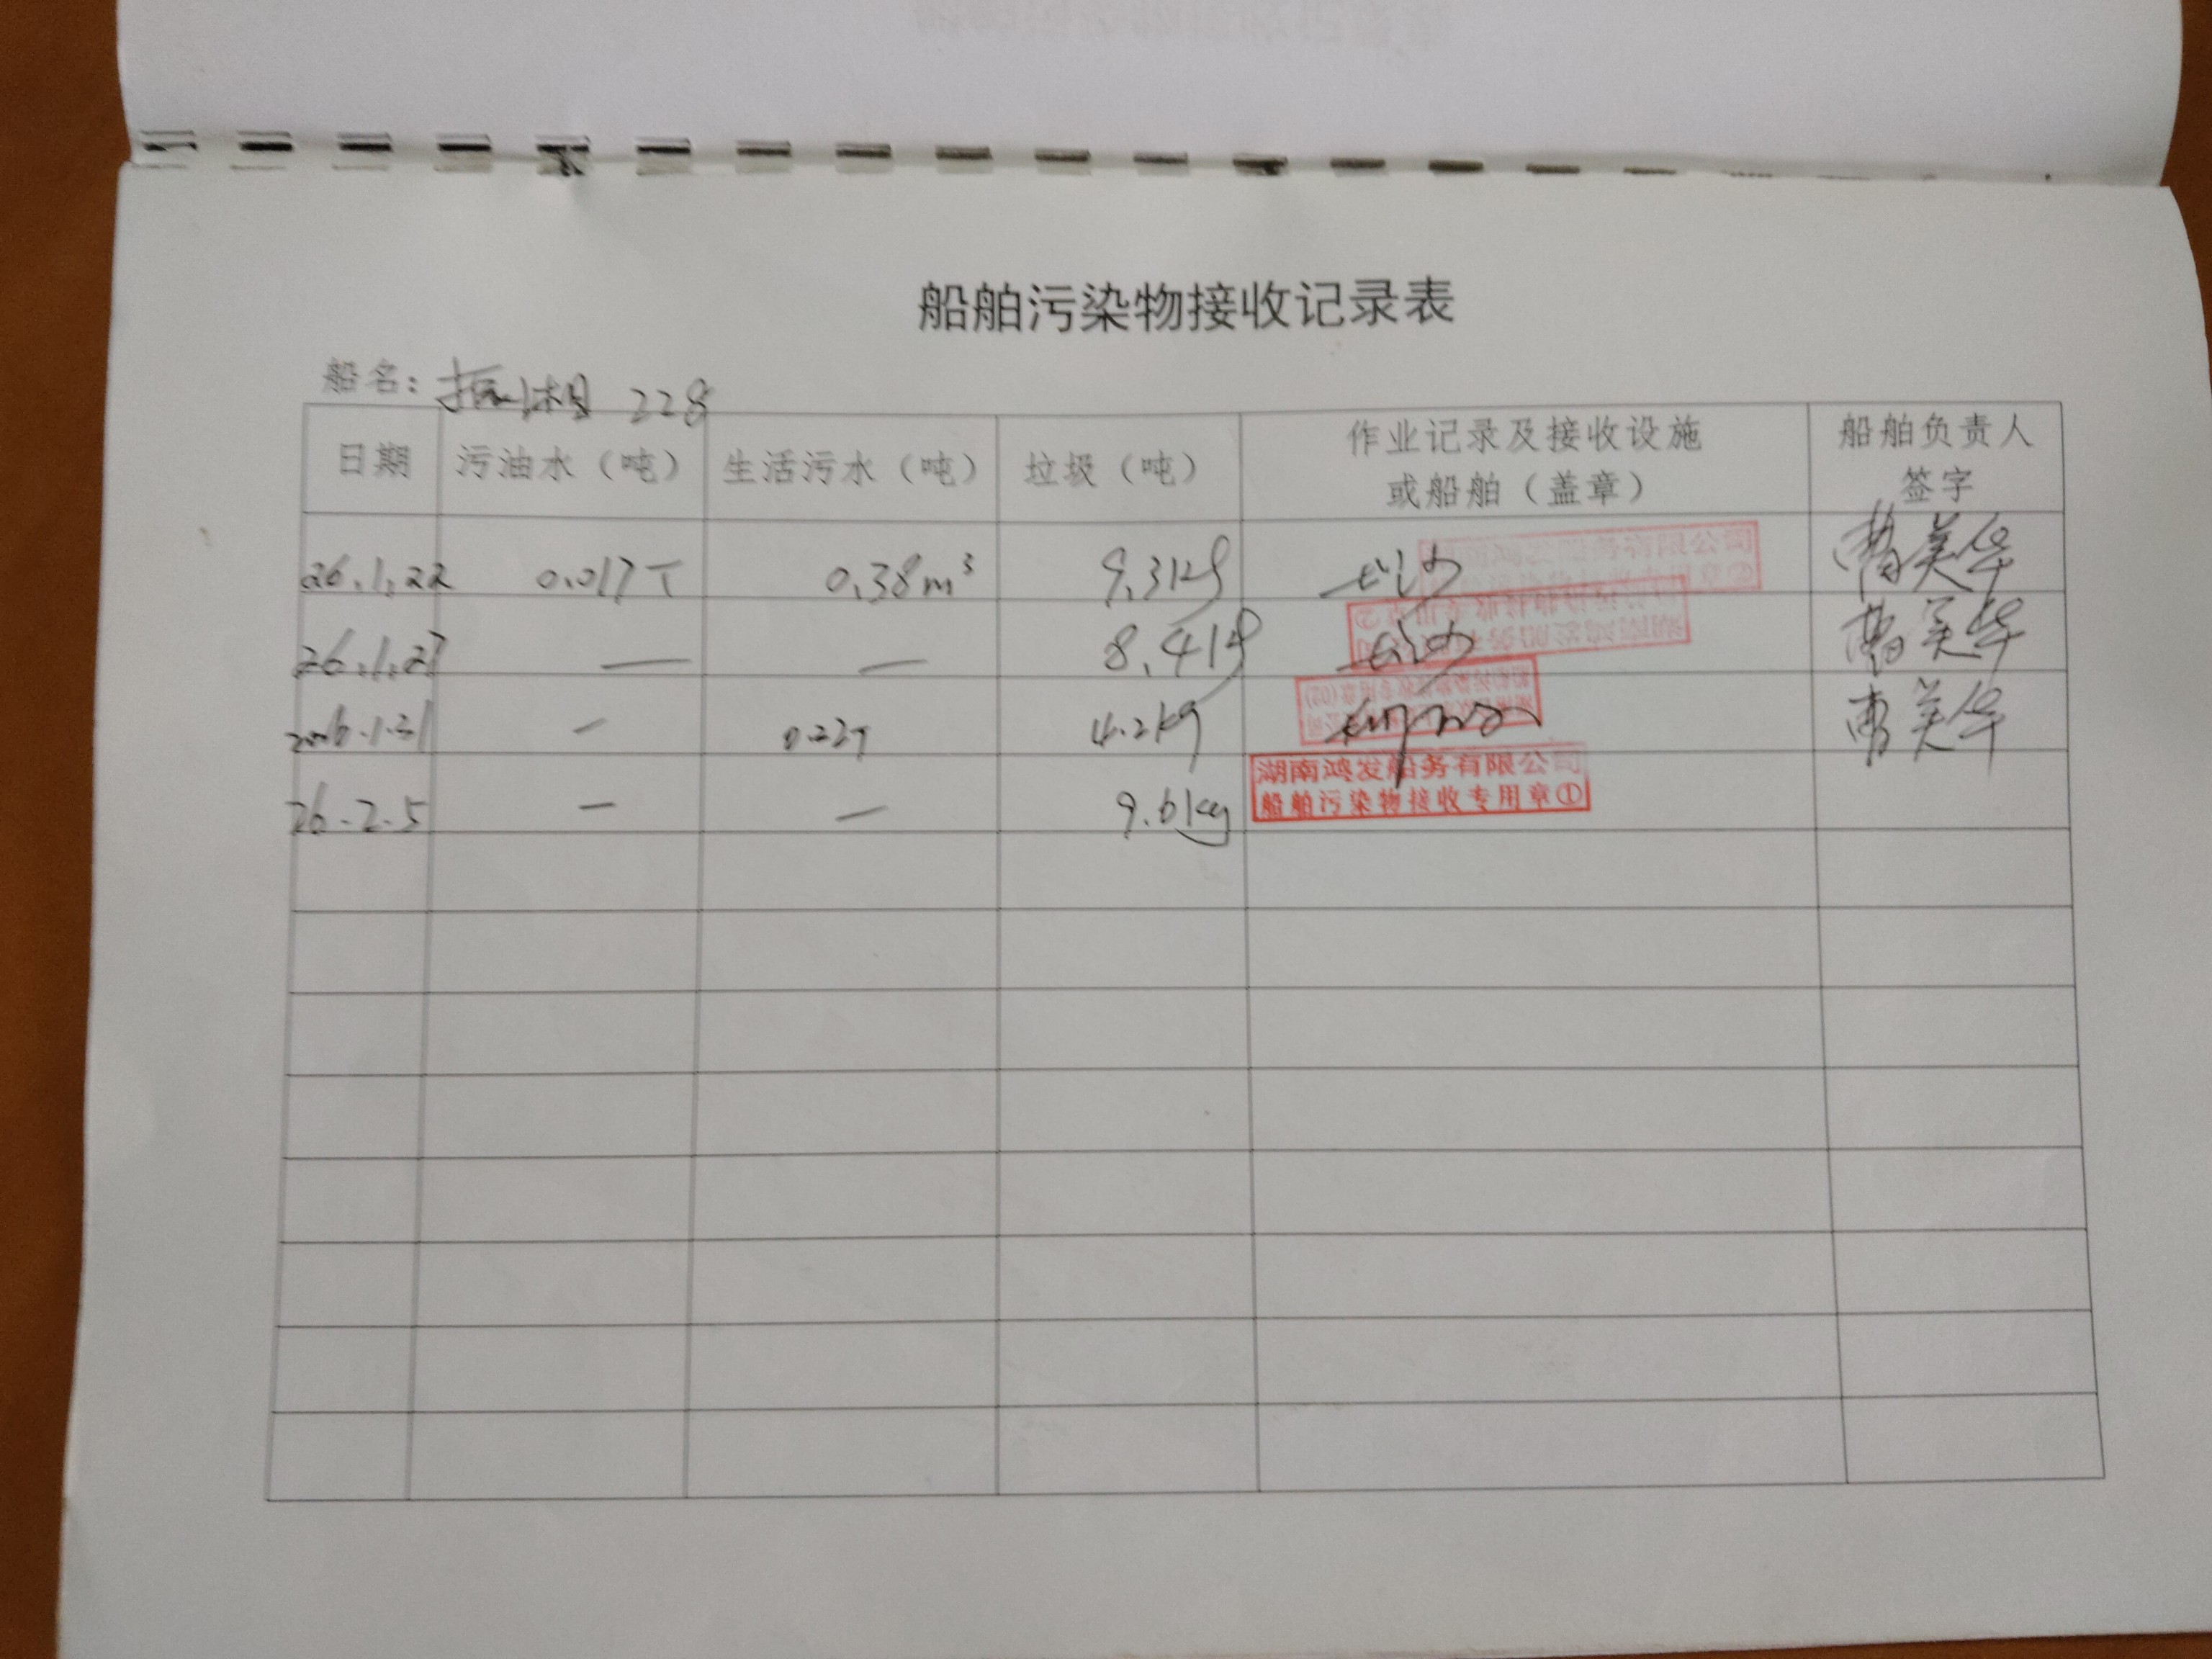 船舶污染物接收记录表
船名: 振湘 228
日期 污油水（吨） 生活污水（吨） 垃圾（吨） 作业记录及接收设施或船舶（盖章） 船舶负责人签字
26.1.22 0.017T 0.38m³ 9.3kg 长沙 曹美华
湖南鸿发船务有限公司
26.1.27 — — 8.4kg 长沙 曹美华
2026.1.31 — 0.22T 4.2kg 曹美华
26.2.5 — — 9.6kg
湖南鸿发船务有限公司
船舶污染物接收专用章①